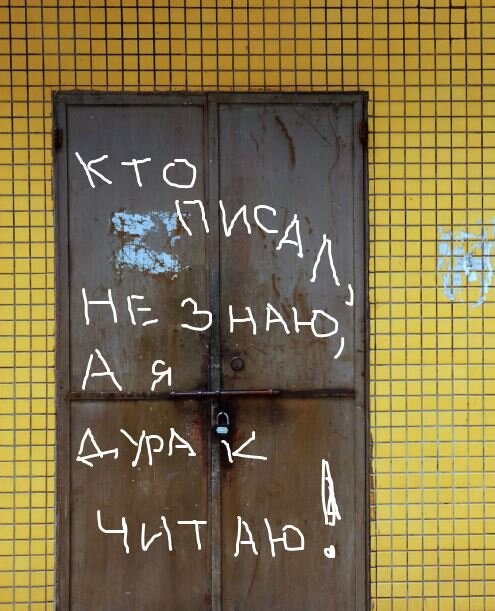 КТО
ПИСАЛ,
НЕ ЗНАЮ,
А Я
ДУРАК
ЧИТАЮ!